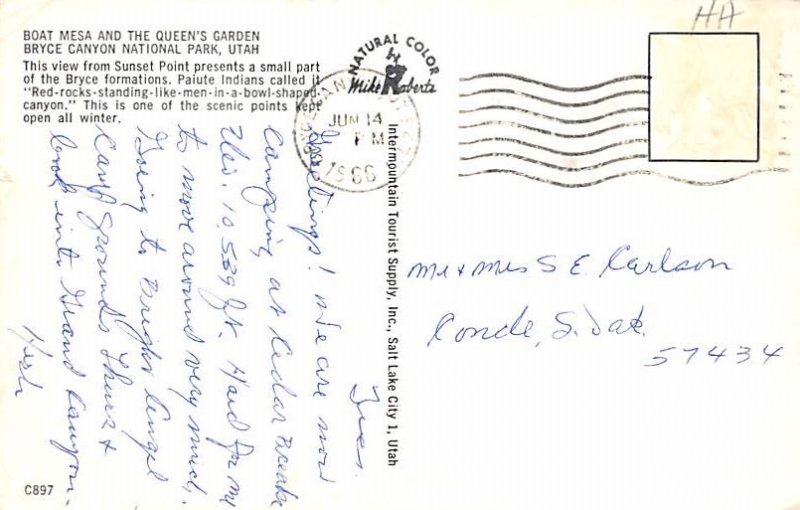 BOAT MESA AND THE QUEEN'S GARDEN
BRYCE CANYON NATIONAL PARK, UTAH
This view from Sunset Point presents a small part
of the Bryce formations. Paiute Indians called it
"Red-rocks-standing-like-men-in-a-bowl-shaped-
canyon." This is one of the scenic points kept
open all winter.
NATURAL COLOR
by
Mike Roberts
JUN 14
PM
1966
HH
Intermountain Tourist Supply, Inc., Salt Lake City 1, Utah
Tues.
Greetings! We are now
Camping at Cedar Breaks
Elev. 10,539 ft. Hard for me
to move around very much.
Going to Bright Angel
Camp Grounds Thurs &
look into Grand Canyon.
Herb
Mr & Mrs S E. Carlson
Conde, S. Dak.
57434
C897